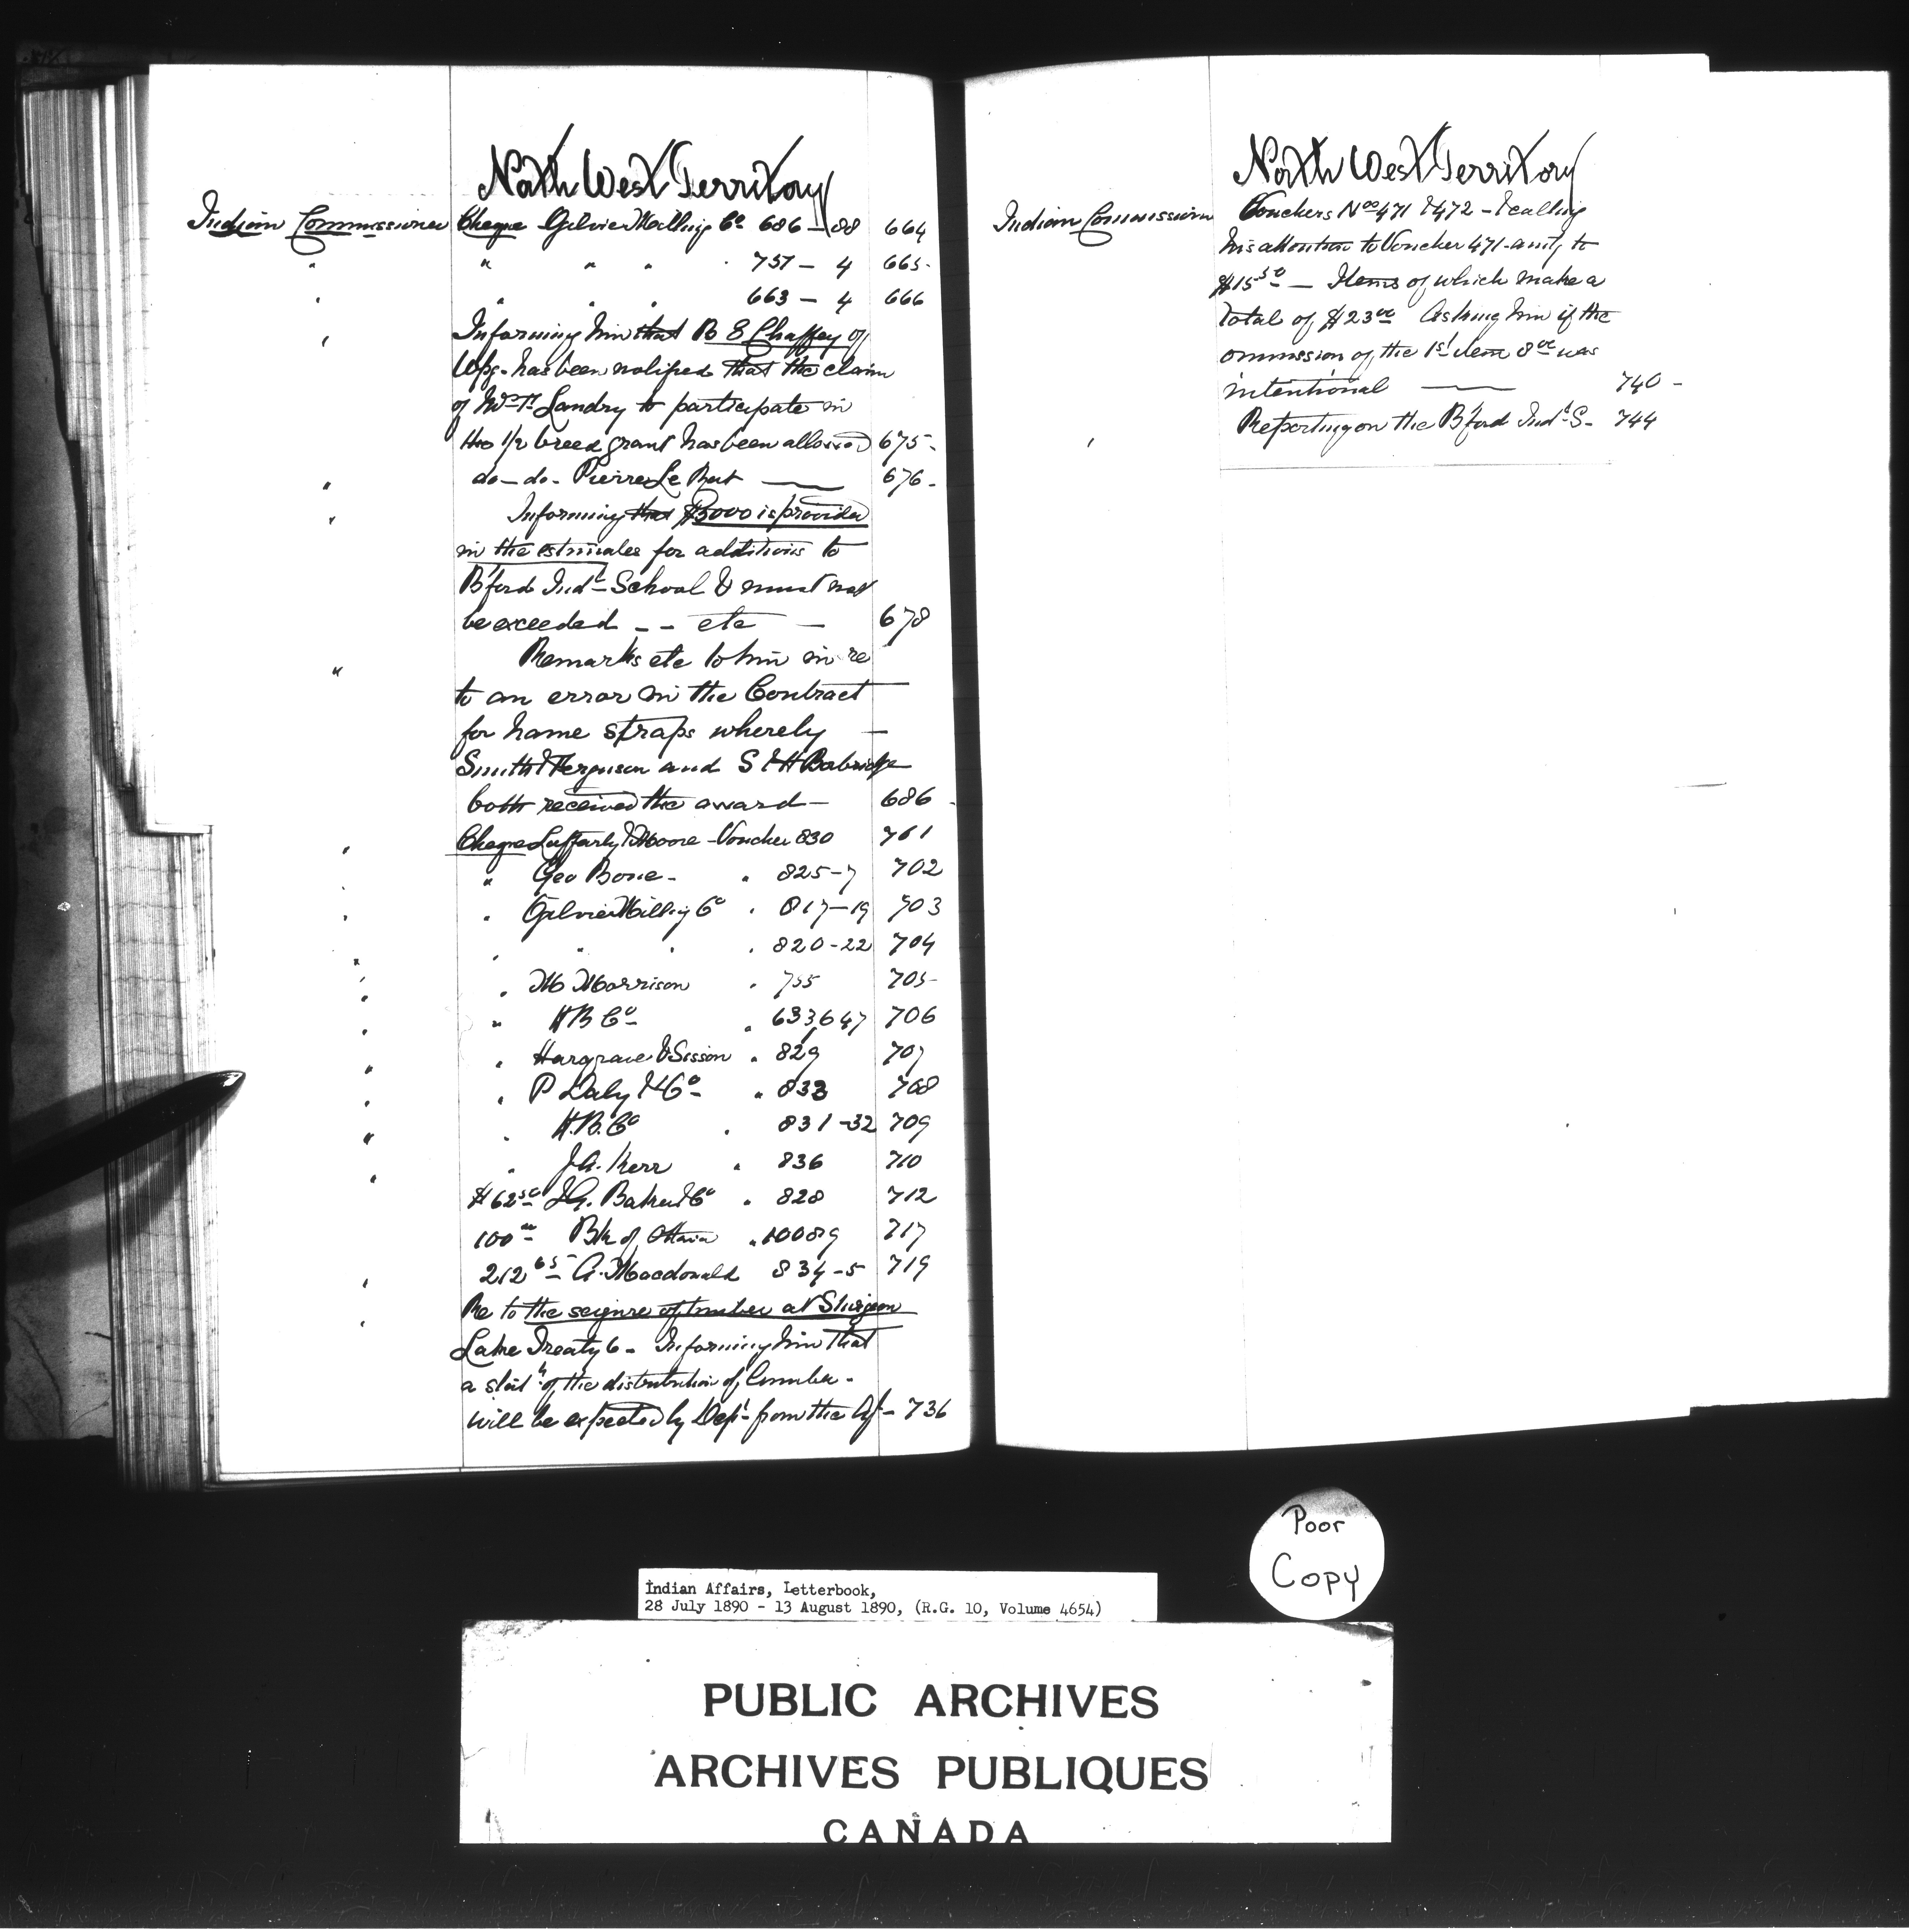 North West Territory
Indian Commissioner Cheque Ogilvie Milling Co 686-88 664
" " " " 757 - 4 665-
" " " " 663 - 4 666
" Informing him that B S Chaffey of
Wpg. has been notified that the claim
of Landry to participate in
the 1/2 breed grant has been allowed 675-
" do - do - Pierre Le Bert 676-
" Informing that $3000 is provided
in the estimates for additions to
B'ford Indl School & must not
be exceeded - - etc - 678
" Remarks etc to him in re
to an error in the Contract
for hame straps whereby -
Smith & Ferguson and S & H
both received the award - 686
" Cheque Lafferty & Moore - Voucher 830 701
" " Geo Bone - " 825-7 702
" " Ogilvie Milling Co " 817-19 703
" " " " " 820-22 704
" " M Morrison " 755 705-
" " H B Co " 633,647 706
" " Hargrave & Sisson " 829 707
" " P Daly & Co - " 833 708
" " H.B. Co " 831-32 709
" " J A. Kerr " 836 710
$62 50 I G. Baker & Co " 828 712
100 00 Bk of Ottawa " 10089 717
" 212 65 A. Macdonald 834-5 719
" Re to the seizure of timber at Sturgeon
Lake Treaty 6 - Informing him that
a stat't of the distribution of lumber -
will be expected by Dept - from the Agt - 736
North West Territory
Indian Commissioner Vouchers Nos 471 & 472 - & calling
his attention to Voucher 471 - amtg to
$15 50 - Items of which make a
total of $23 00 Asking him if the
ommission of the 1st item 8 00 was
intentional 740-
" Reporting on the B'ford Indl S- 744
Poor
Copy
Indian Affairs, Letterbook,
28 July 1890 - 13 August 1890, (R.G. 10, Volume 4654)
PUBLIC ARCHIVES
ARCHIVES PUBLIQUES
CANADA